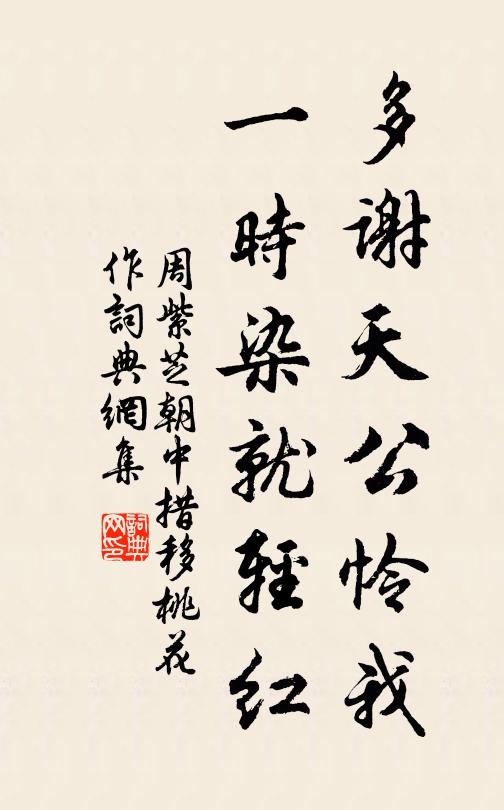 多謝天公怜我
一時染就輕紅
周紫芝朝中措移桃花
作詞典網集
詞典网印